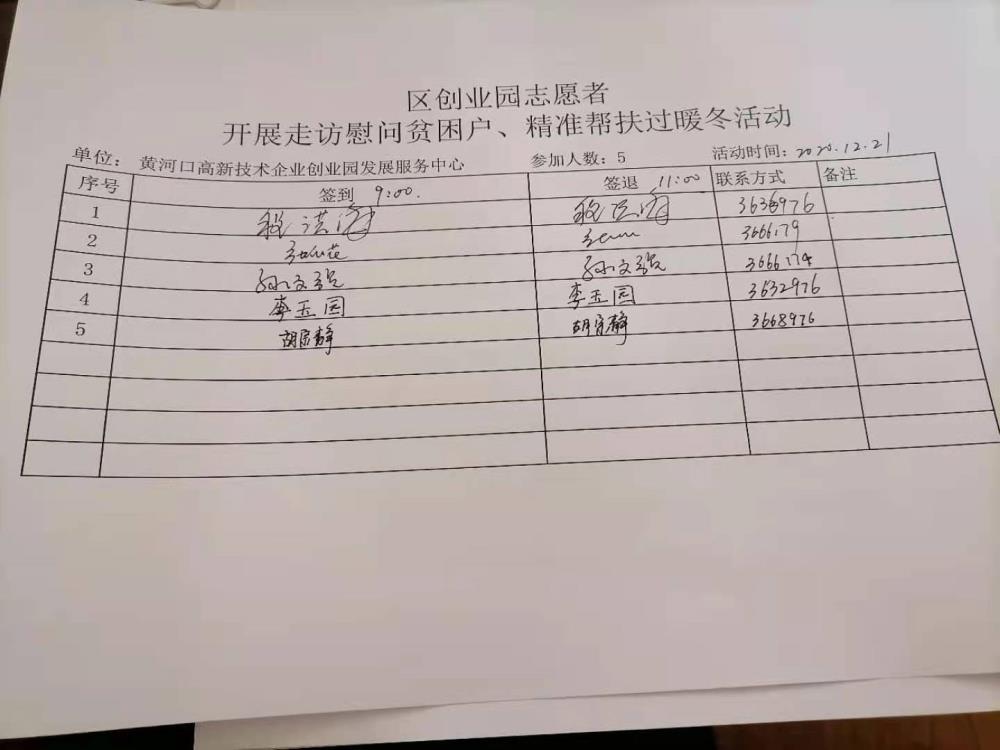 区创业园志愿者
开展走访慰问贫困户、精准帮扶过暖冬活动
单位： 黄河口高新技术企业创业园发展服务中心 参加人数：5 活动时间：2020.12.21
序号 签到 9:00. 签退 11:00 联系方式 备注
1 3638976
2 3666179
3 孙文强 孙文强 3666174
4 李玉园 李玉园 3632976
5 胡宗静 胡宗静 3668976